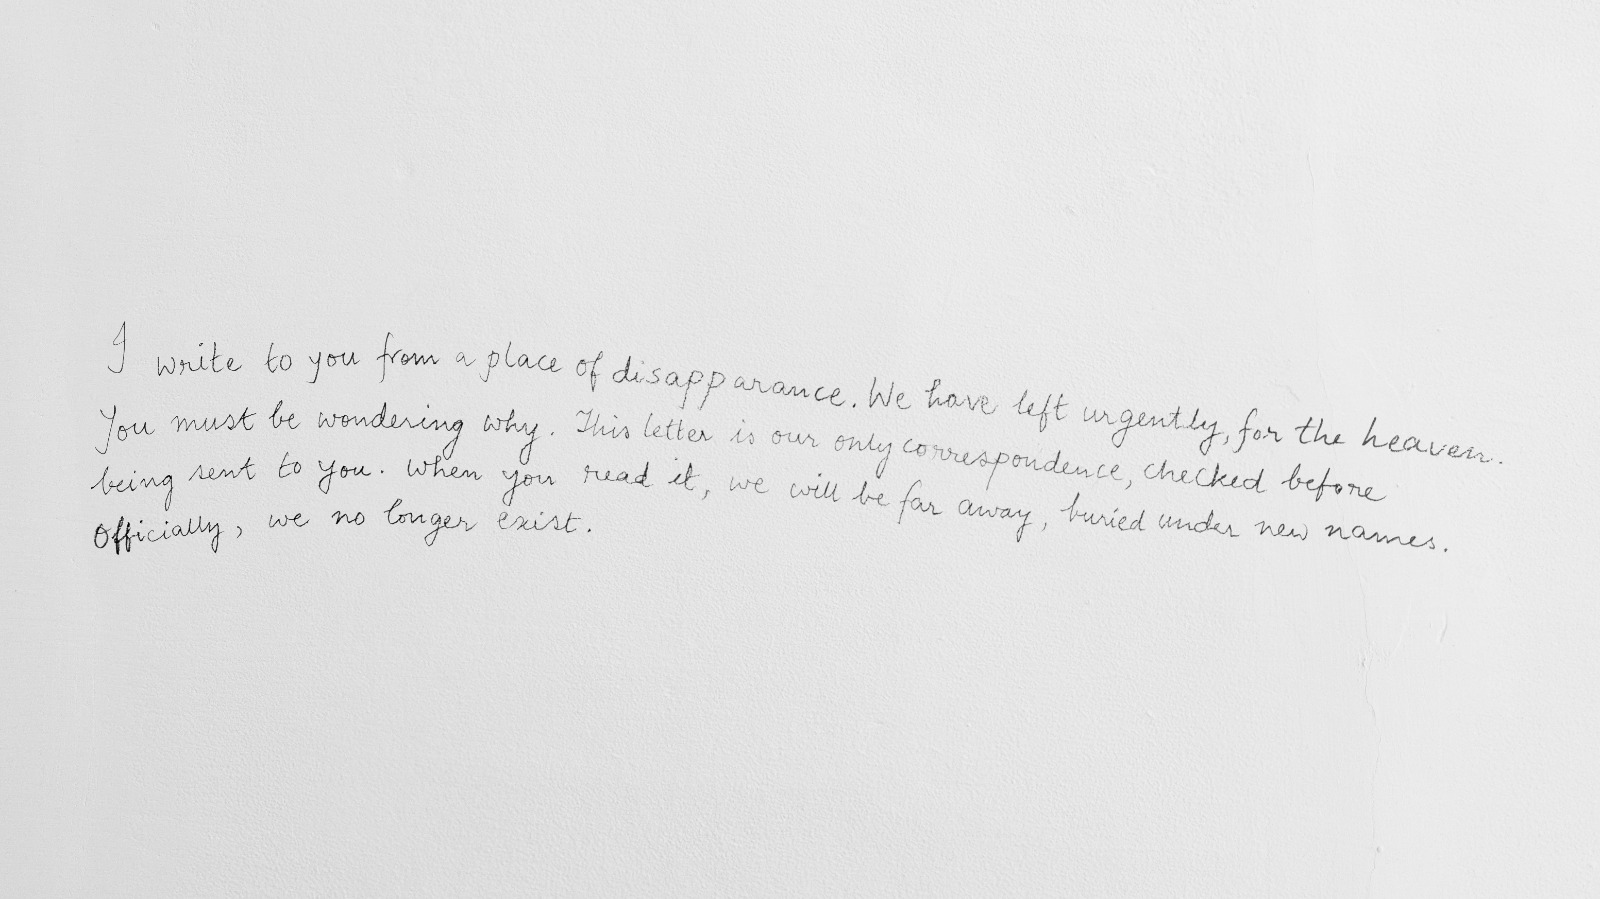 I write to you from a place of disapparance. We have left urgently, for the heaven.
You must be wondering why. This letter is our only correspondence, checked before
being sent to you. When you read it, we will be far away, buried under new names.
Officially, we no longer exist.